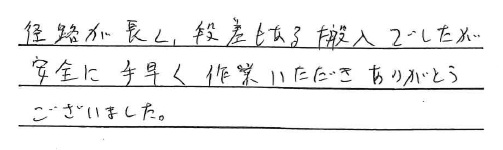 径路が長く、段差もある搬入でしたが
安全に手早く作業いただきありがとう
ございました。